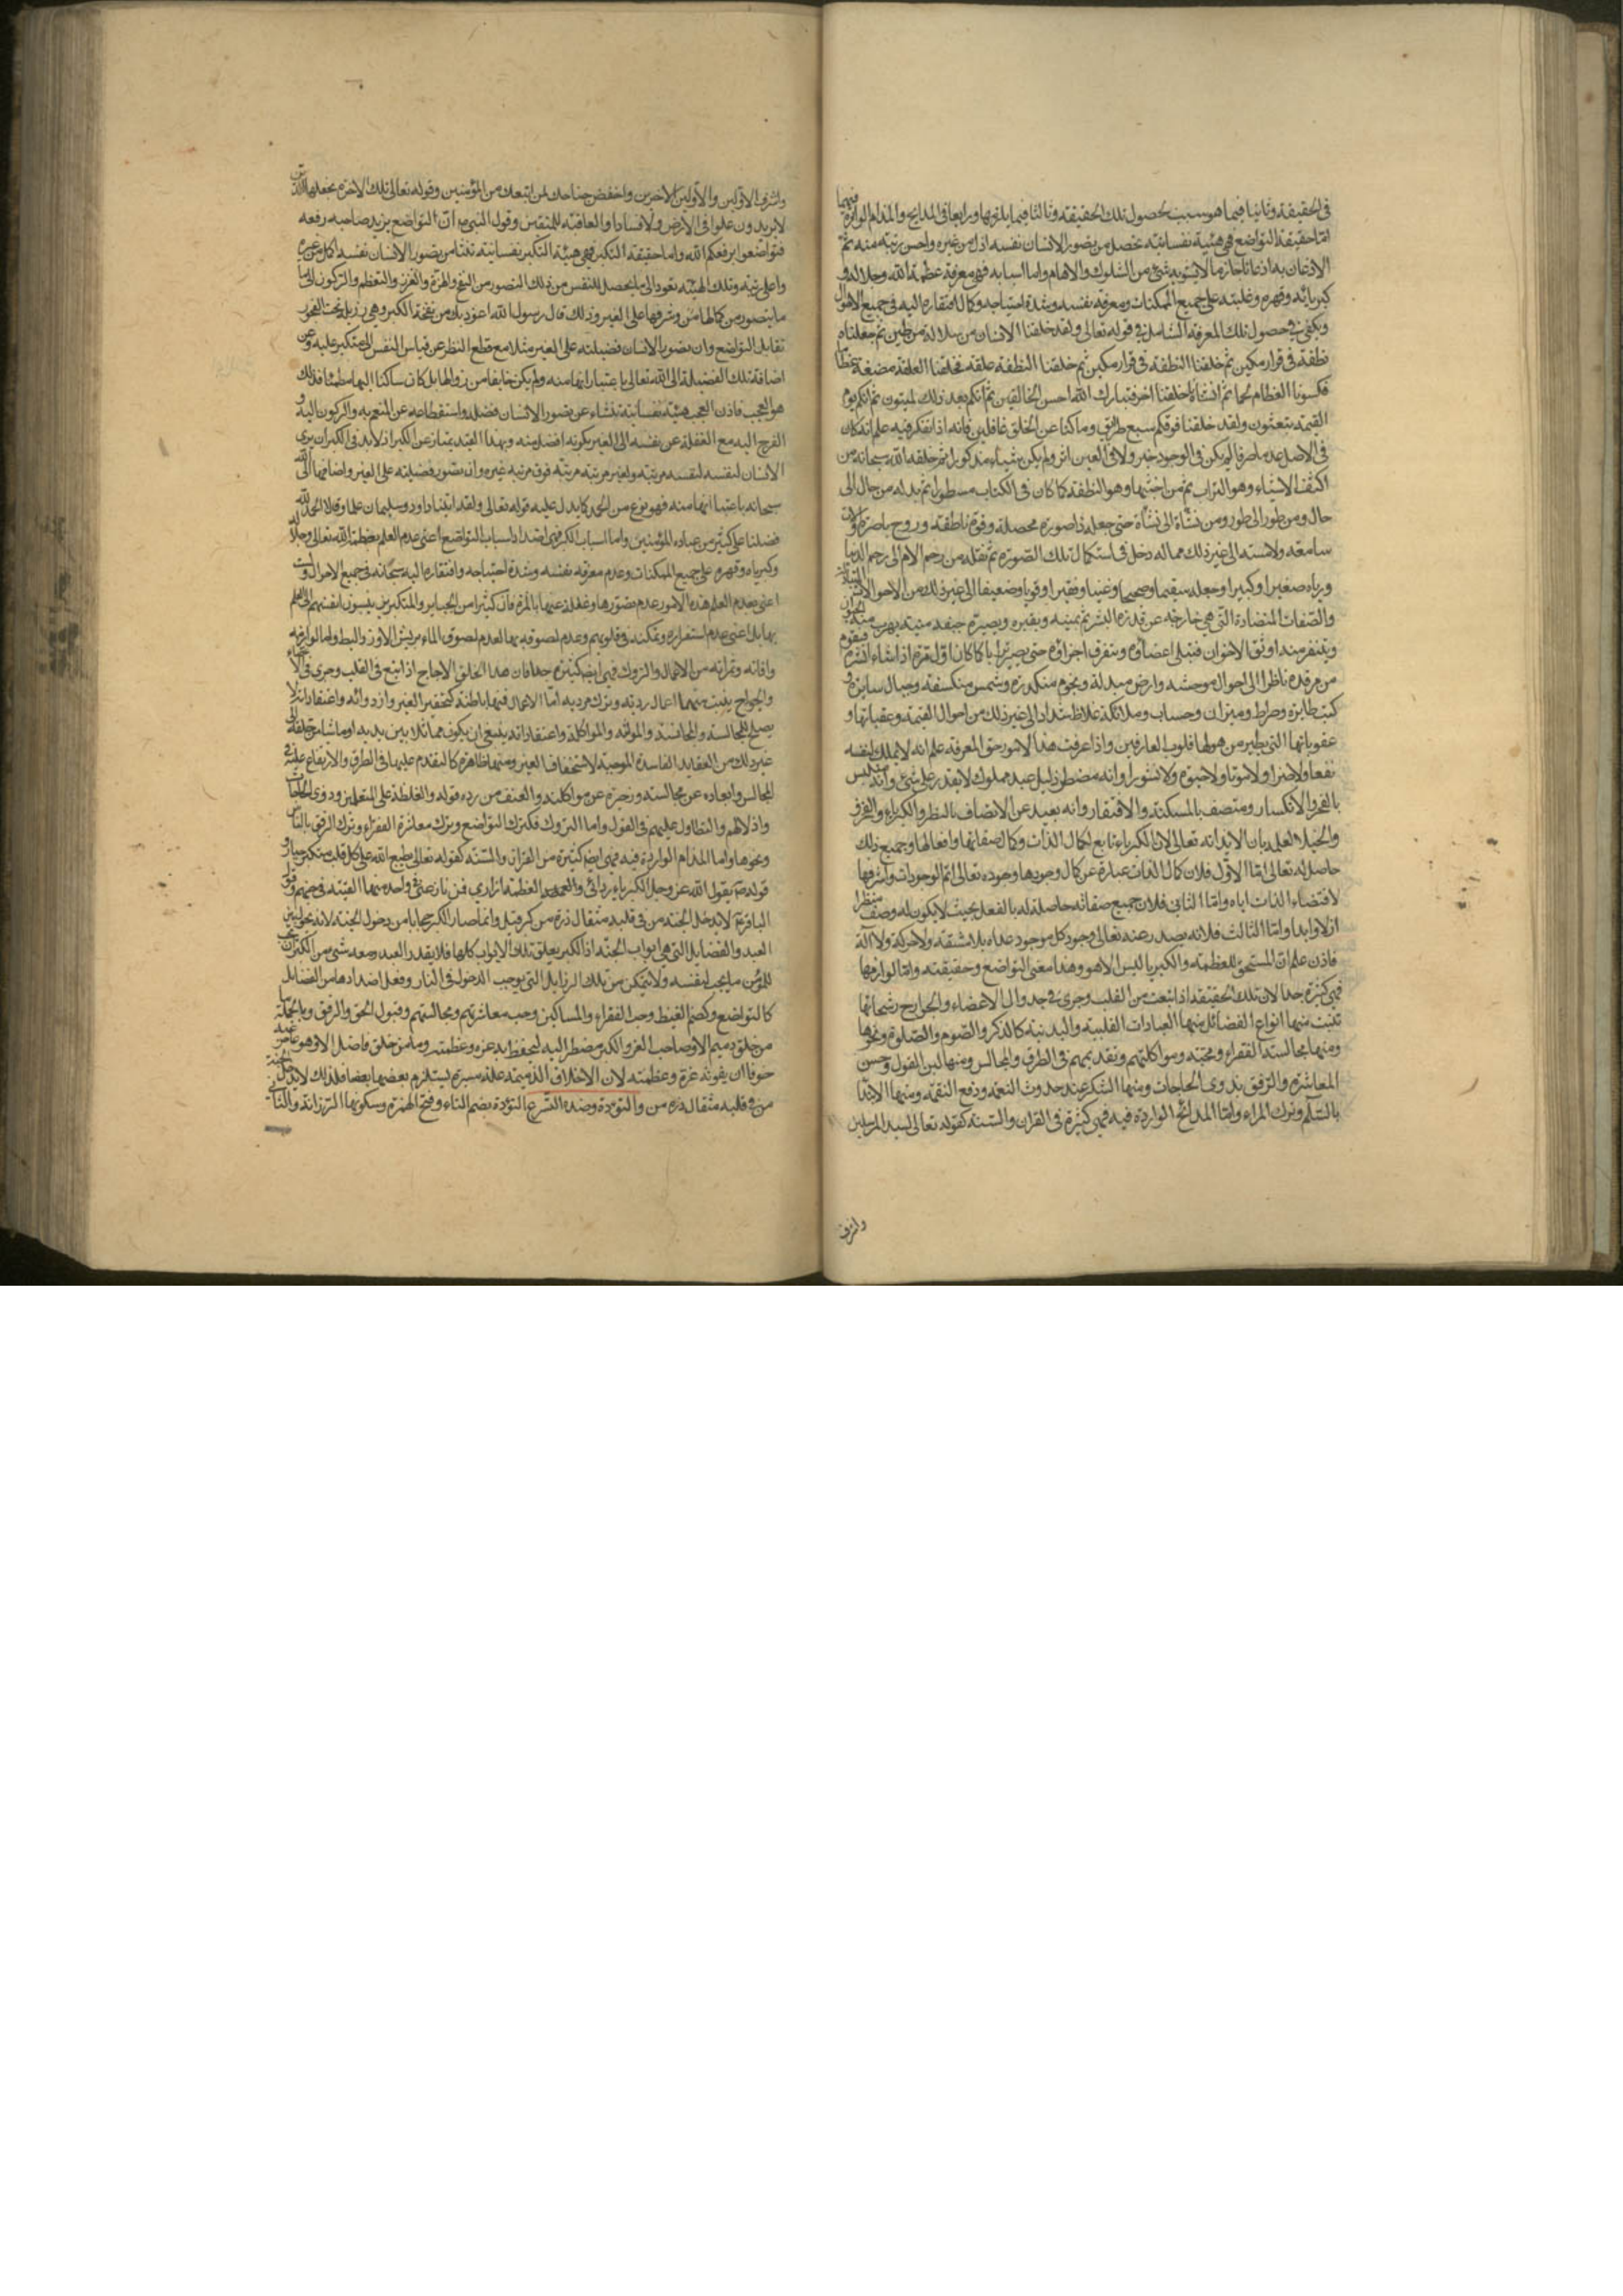 في الحقيقة وثانيا فيما هو سبب لحصول تلك الحقيقة وثالثا فيما يلزمها ورابعا في المدايح والمذام الواردة فيهما
امّا حقيقة التواضع فهي هيئة نفسانية تحصل من تصور الانسان نفسه اذل من غيره واحسن رتبة منه ثمّ
الاذعان به اذعانا جازما لا يشوبه شئ من الشكوك والاوهام واما اسبابه فهي معرفة عظمة الله وجلاله و
كبريائه وقهره وغلبته على جميع الممكنات ومعرفة نفسه وشدة احتياجه وكمال افتقاره اليه في جميع الاحوال
ويكفي في حصول تلك المعرفة التامل في قوله تعالى ولقد خلقنا الانسان من سلالة من طين ثم جعلناه
نطفة في قرار مكين ثم خلقنا النطفة في قرار مكين ثم خلقنا النطفة علقة فخلقنا العلقة مضغة عظاما
فكسونا العظام لحما ثم انشأناه خلقنا اخر فتبارك الله احسن الخالقين ثم انكم بعد ذلك لميتون ثم انكم يوم
القيمة تبعثون ولقد خلقنا فوقكم سبع طرائق وما كنا عن الخلق غافلين فانه اذا تفكر فيه علم انه كان
في الاصل عدما صرفا لم يكن في الوجود خبر ولا في العين اثر ولم يكن شيئا مذكورا ثم خلقه الله سبحانه من
اكثف الاشياء وهو التراب ثم من اخبثها وهو النطفة كما كان في الكتاب مسطورا ثم بدله من حال الى
حال ومن طور الى طور ومن نشأة الى نشأة حتى جعله ذا صورة محصلة وقوة ناطقة وروح باصرة واذن
سامعة ولامسة الى غير ذلك مما له دخل في استكمال تلك الصورة ثم نقله من رحم الام الى رحم الدنيا
ورباه صغيرا وكبيرا وجعله سقيما وصحيحا وغنيا وفقيرا وقويا وضعيفا الى غير ذلك من الاحوال
والصفات المتضادة التي هي خارجة عن قدرة البشر ثم يميته ويقبره ويصيره جيفة منتنة يهرب منه
ويتنفر منه اوثق الاخوان فتبلى اعضاؤه ويتفرق اجزاؤه حتى يصير ترابا كما كان اول مرة اذا شاء انشره فيقوم
من مرقده ناظرا الى احوال موحشة وارض مبدلة ونجوم منكدرة وشمس منكسفة وجبال سايرة و
كتب طايرة وصراط وميزان وحساب وملائكة غلاظ شداد الى غير ذلك من اهوال القيمة وعقباتها و
عقوباتها التي يطير من هولها قلوب العارفين واذا عرفت هذا الامور حق المعرفة علم انه لا يملك لنفسه
نفعا ولا ضرا ولا موتا ولا حيوة ولا نشورا وانه مضطر ذليل عبد مملوك لا يقدر على شئ وانه متلبس
بالعجز والانكسار ومتصف بالمسكنة والافتقار وانه بعيد عن الاتصاف بالنظر والكبرياء والفخر
والخيلاء العلم بان الابد انه تعالى لان الكبرياء تابع لكمال الذات وكمال صفاتها وافعالها وجميع ذلك
حاصل له تعالى امّا الاوّل فلان كمال الذات عبارة عن كمال وجودها وجوده تعالى اتم الوجودات واشرفها
لاقتضاء الذات اياه وامّا الثاني فلان جميع صفاته حاصلة له بالفعل بحيث لا يكون له وصف منتظرا
ازلا وابدا وامّا الثالث فلانه يصدر عنه تعالى وجود كل موجود عداه بلا مشقة ولا حركة ولا آلة
فاذن علم ان المستحق للعظمة والكبريا ليس الا هو وهذا معنى التواضع وحقيقته وامّا لوازمها
فهي كثيرة جدا لان تلك الحقيقة اذا انبعثت من القلب وجرى في جداول الاعضاء والجوارح رشحاتها
تنبت منها انواع الفضائل منها العبادات القلبية والبدنية كالذكر والصوم والصلوة ونحوها
ومنها مجالسة الفقراء ومحبتة ومواكلتهم وتقديمهم في الطرق والمجالس ومنها لين القول وحسن
المعاشرة والترفق بذوي الحاجات ومنها الشكر عند حدوث النعمة ودفع النقمة ومنها الابتدا
بالسلم وترك المراء وامّا المدائح الواردة فيه فهي كثيرة في القرآن والسنة كقوله تعالى لسيد المرسلين
واشرف
واشرف الاولين والاخرين واخفض جناحك لمن اتبعك من المؤمنين وقوله تعالى تلك الاخرة نجعلها للذين
لا يريدون علوا في الارض ولا فسادا والعاقبة للمتقين وقول النبي ص ان التواضع يزيد صاحبه رفعة
فتواضعوا يرفعكم الله واما حقيقة التكبر فهي هيئة التكبر نفسانية تنشأ من تصور الانسان نفسه اكمل من غيره
واعلى رتبة وتلك الهيئة تعود الى ما يحصل للنفس من ذلك التصور من النفخ والهزة والتعزز والتعظم والركون الى ما
ما يتصور من كمالها من وشرفها على الغير ولذلك قال رسول الله اعوذ بك من نفخة الكبر وهي رذيلة تحت الفجور
تقابل التواضع وان تصور الانسان فضيلته على الغير مثلا مع قطع النظر عن قياس النفس الى متكبر عليه وعن
اضافة تلك الفضيلة الى الله تعالى باعتبار انها منه ولم يكن خايفا من زوالها بل كان ساكنا اليها مطمئنا فذلك
هو العجب فاذن العجب هيئة نفسانية تنشاء عن تصور الانسان فضله واستقطاعه عن المنعم به والركون اليه و
الفرح اليه مع الغفلة عن نفسه الى الغير بكونه افضل منه وبهذا القيد يمتاز عن الكبر اذ لابد في الكبر ان يرى
الانسان لنفسه لنفسه مرتبة ولغيره مرتبة مرتبة فوق مرتبة غيره وان تصور فضيلته على الغير واضافها الى الله
سبحانه باعتبا انها منه فهو نوع من الحمد كما يدل عليه قوله تعالى ولقد اتينا داود وسليمان علما وقالا الحمد لله
فضلنا على كثير من عباده المؤمنين واما اسباب الكبر فهي اضداد اسباب التواضع أعني عدم العلم بعظمة الله تعالى وجلاله
وكبرياه وقهره على جميع الممكنات وعدم معرفة نفسه وشدة احتياجه وافتقاره اليه سبحانه في جميع الاحوال
اعني بعدم العلم هذه الامور عدم تصورها وغفلة عنها بالمرة فان كثيرا من الجبابر والمتكبرين ينسبون انفسهم الى العلم
بها بل اعني عدم استقراره وتمكنه في قلوبهم وعدم لصوقه بها لعدم لصوق الماء بريش الاوز والبط واما لوازمه
وافاته وثمراته من الاعمال والتروك فهي ايضا كثيرة جدا فان هذا الخلق الاجاج اذا نبع في القلب وجرى في
والجوارح ينبت منها اعمال ردية وترك مردية امّا الاعمال فمنها باطنة كتحقير الغير وازدرائه واعتقاد انه لا
يصلح للمجالسة والمجانسة والمؤانسه والمواكلة واعتقاد انه ينبغي ان يكون مماثلا بين يديه او ماشيا خلفه الى
غير ذلك من العقايد الفاسدة الموجبة لاستخفاف الغير ومنها ظاهرة كالتقدم عليها في الطرق والارتفاع عليه في
المجالس وابعاده عن مجالسته وزجره عن مواكلته والعنف من رده قوله والغلظة على المتعلمين وذوي الحاجات
واذلالهم والتطاول عليهم في القول واما التروك فكترك التواضع وترك معاشرة الفقراء وترك الرفق بالناس
ونحوها واما المذام الواردة فيه فهي ايضا كثيرة من القران والسنة كقوله تعالى يطبع الله على كل قلب متكبر جبار و
قوله ص يقول الله عز وجل الكبرياء ردائي والعظمة ازاري فمن نازعني في واحد منهما القيته في جهنم وقول
الباقر ع لا يدخل الجنة من في قلبه مثقال ذرة من كبر قيل وانما صار الكبر حجابا من دخول الجنة لانه يحول بين
العبد والفضايل التي هي ابواب الجنة اذ الكبر يغلق تلك الابواب كلها فلا يقدر العبد ومعه شئ من الكبر ان يحب
للمؤمن ما يحب لنفسه ولا يتمكن من تلك الرذايل التي توجب الدخول في النار وفعل اضدادها من الفضايل
كالتواضع وكضم الغيظ وحب الفقراء والمساكين وحب معاشرتهم ومجالستهم وقبول الحق والرفق وبالجملة ما
من خلق دميم الا وصاحب العز والكبر مضطر اليه ليحفظ به عزه وعظمته وما من خلق فاضل الا وهو عاجز عنه
خوفا ان يفوته عزة وعظمته لان الاخلاق الذميمة علة مسيرة يستلزم بعضها بعضا فلذلك لا يدخل الجنة
من في قلبه مثقال ذرة من والتؤدة وضده التسرع التؤدة بضم التاء وفتح الهمزة وسكونها الرزانة والتأني